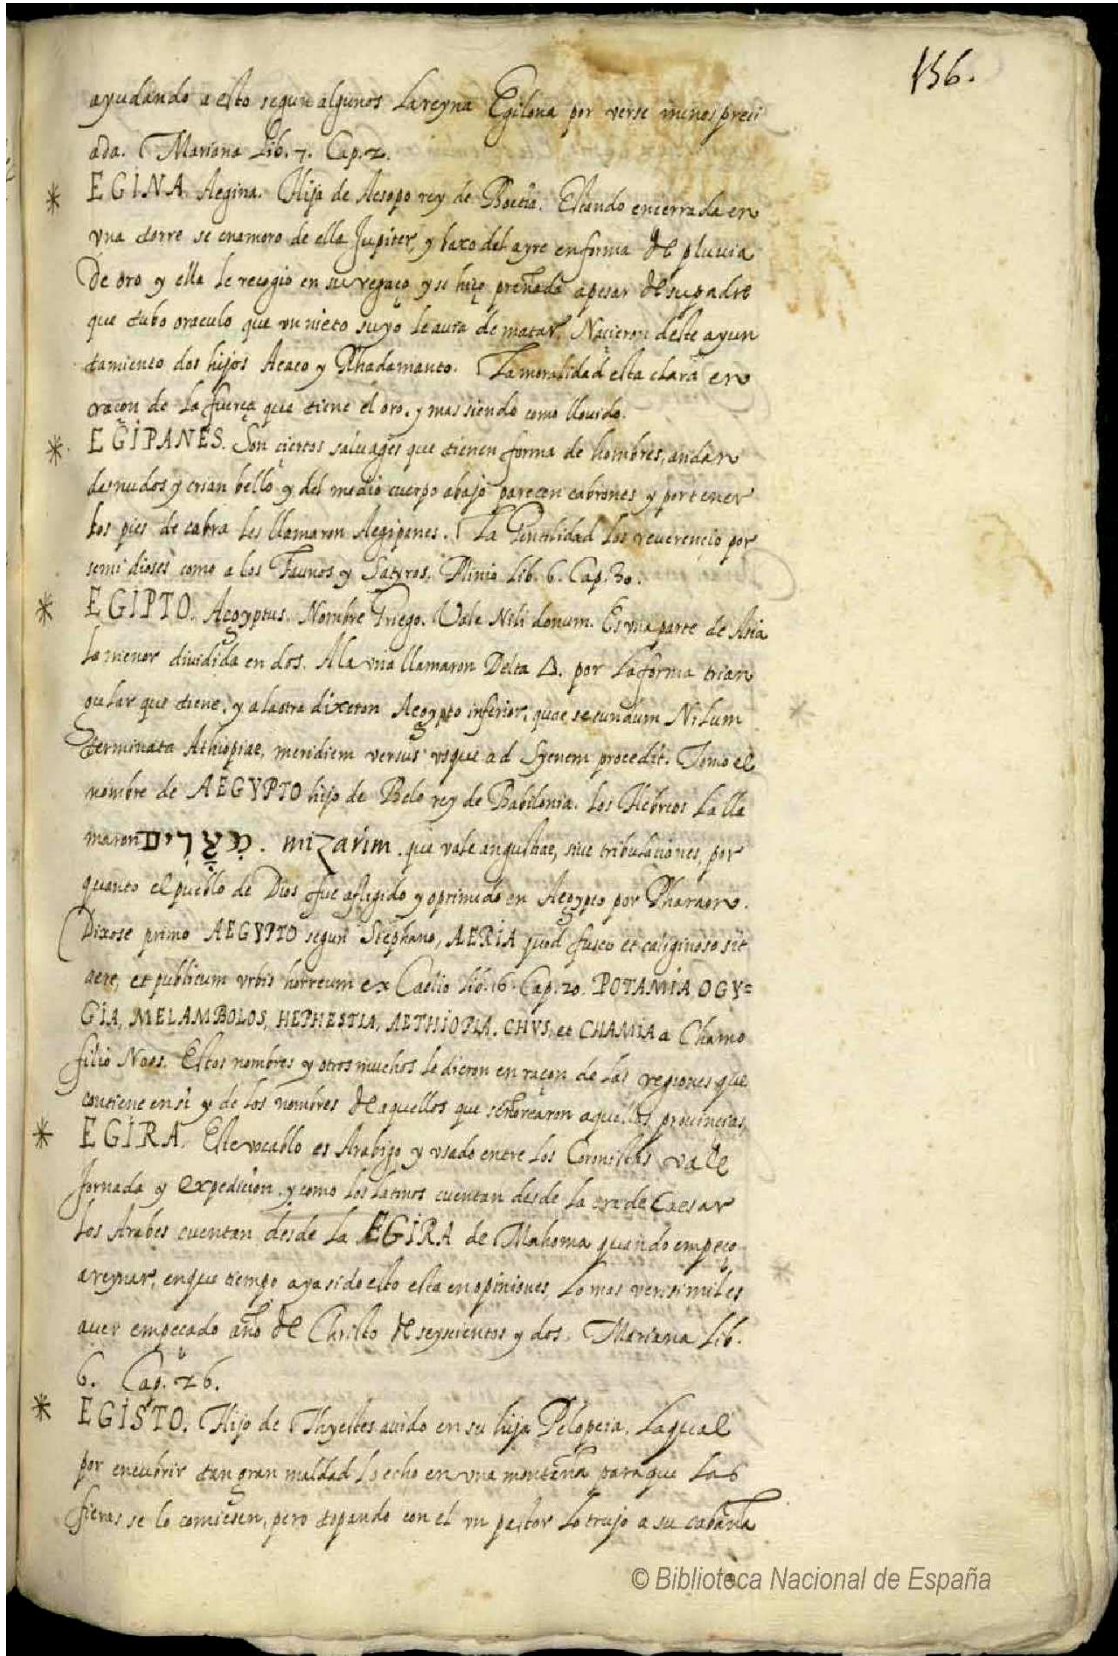 156.
ayudando a esto segun algunos la reyna Egilona por verse menos preci
ada. Mariana Lib. 7. Cap. 2.
* EGINA Aegina. Hija de Aesopo rey de Boecia. Estando encerrada en
vna torre se enamoro de ella Jupiter, y baxo del ayre en forma de pluuia
De oro y ella le recogio en su regaço y se hiço preñada apesar de su padre
que tubo oraculo que vn nieto suyo le auia de matar. Naçieron deste ayun
tamiento dos hijos Acaeo y Rhadamanto. La moralidad esta clara en
raçon de la fuerça que tiene el oro, y mas siendo como llouido.
* EGIPANES. Son çiertos saluages que tienen forma de hombres, andan
desnudos y crian bello y del medio cuerpo abajo parecen cabrones y por tener
los pies de cabra les llamaron Aegipanes. La Gentilidad los reuerencio por
semi dioses como a los Faunos y Satyros. Plinio Lib. 6. Cap. 30.
* EGIPTO. Aegyptus. Nombre Griego. Vale Nili donum. Es vna parte de Asia
la menor diuidida en dos. A la vna llamaron Delta Δ. por la forma trian
gular que tiene, y a la otra dixeron Aegypto inferior, quae secundum Nilum
terminata Athiopiae, meridiem versus vsque ad Syenem procedit. Tomo el
nombre de AEGYPTO hijo de Belo rey de Babilonia. Los Hebreos la lla
maron מצרים. mizarim. que vale angustiae, siue tribulaciones, por
quanto el pueblo de Dios fue afligido y oprimido en Aegypto por Pharaon.
Dixose primo AEGYPTO segun Stephano, AERIA quod fusco et caliginoso sit
aere, et publicum vrbis horreum ex Caelio lib. 16. Cap. 20. POTAMIA, OGY=
GIA, MELAMBOLOS, HEPHESTIA, AETHIOPIA. CHVS, et CHAMIA a Chamo
filio Noes. Estos nombres y otros muchos le dieron en raçon de las regiones que
contiene en si y de los nombres de aquellos que señorearon aquellas prouincias.
* EGIRA. Este vocablo es Arabigo y vsado entre los Coronistas vale
Jornada y expedicion. y como los latinos cuentan desde la era de Caesar
los Arabes cuentan desde la EGIRA de Mahoma quando empeço
a reynar, en que tiempo aya sido esto esta en opiniones, lo mas verisimil es
auer empeçado año de Christo de seyscientos y dos. Mariana Lib.
6. Cap. 26.
* EGISTO. Hijo de Thyestes auido en su hija Pelopeia, la qual
por encubrir tan gran maldad lo echo en vna montaña para que las
fieras se lo comiesen, pero topando con el vn pastor lo trujo a su cabaña
© Biblioteca Nacional de España